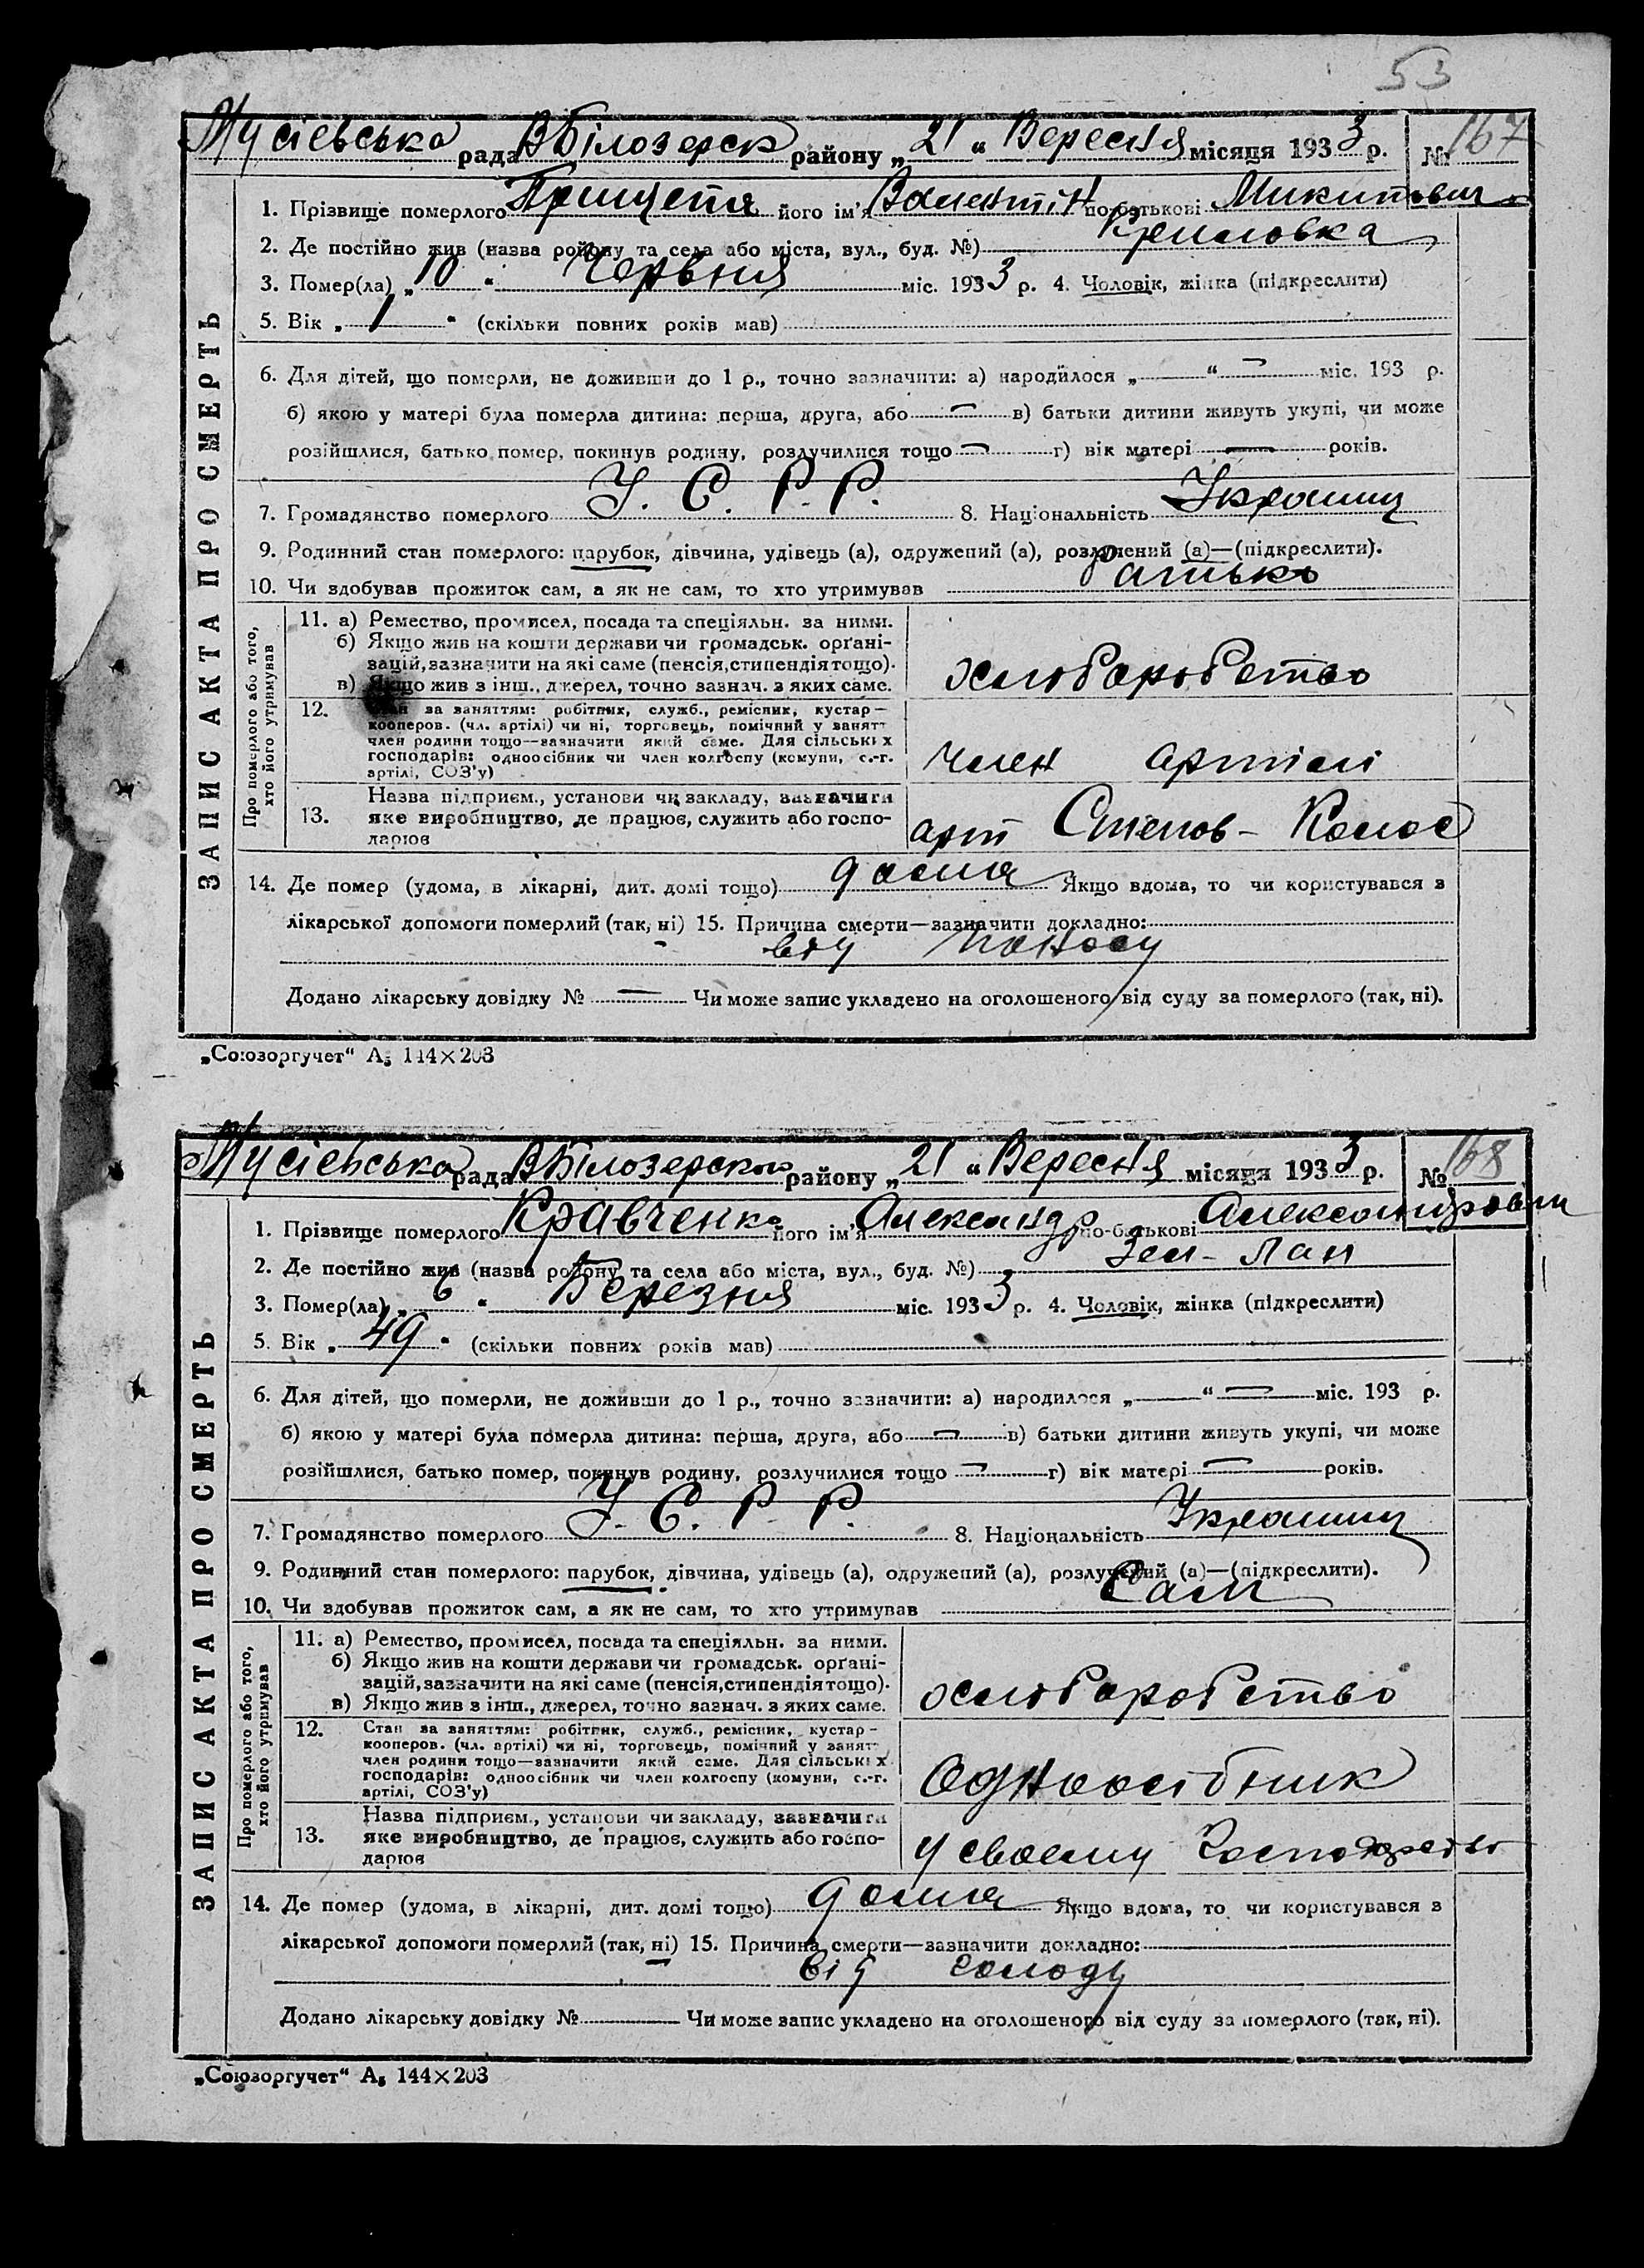 53
Мусієвська рада ВБілозерск району „21“ Вересня місяця 1933 р. № 167
1. Прізвище померлого Прищепа його ім'я Валентін по-батькові Микитович
2. Де постійно жив (назва району та села або міста, вул., буд. №)
3. Помер(ла) „10“ Червня міс. 1933 р. 4. Чоловік, жінка (підкреслити)
5. Вік „1“ (скільки повних років мав)
6. Для дітей, що померли, не доживши до 1 р., точно зазначити: а) народилося „—“ — міс. 193 р.
б) якою у матері була померла дитина: перша, друга, або — в) батьки дитини живуть укупі, чи може
розійшлися, батько помер, покинув родину, розлучилися тощо — г) вік матері — років.
7. Громадянство померлого У. С. Р. Р. 8. Національність Украинц
9. Родинний стан померлого: парубок, дівчина, удівець (а), одружений (а), розлучений (а)—(підкреслити).
10. Чи здобував прожиток сам, а як не сам, то хто утримував батько
ЗАПИС АКТА ПРО СМЕРТЬ
Про померлого або того, хто його утримував
11. а) Ремество, промисел, посада та спеціяльн. за ними.
б) Якщо жив на кошти держави чи громадськ. орґані-
зацій, зазначити на які саме (пенсія, стипендія тощо).
в) Якщо жив з інш., джерел, точно зазнач. з яких саме.
хліборобство
12. Стан за заняттям: робітник, служб., ремісник, кустар—
кооперов. (чл. артілі) чи ні, торговець, помічний у занятт
член родини тощо—зазначити який саме. Для сільських
господарів: одноосібник чи член колгоспу (комуни, с.-г.
артілі, СОЗ'у)
член артілі
13. Назва підприєм., установи чи закладу, зазначити
яке виробництво, де працює, служить або госпо-
дарює
арт Степов- Колос
14. Де помер (удома, в лікарні, дит. домі тощо) дома Якщо вдома, то чи користувався з
лікарської допомоги померлий (так, ні) 15. Причина смерти—зазначити докладно:
від поносу
Додано лікарську довідку № — Чи може запис укладено на оголошеного від суду за померлого (так, ні).
„Союзоргучет“ А5 144×203
Мусієвська рада ВБілозерского району „21“ Вересня місяця 1933 р. № 168
1. Прізвище померлого Кравченко його ім'я Александр по-батькові Александрович
2. Де постійно жив (назва району та села або міста, вул., буд. №) Зел- Лан
3. Помер(ла) „6“ Березня міс. 1933 р. 4. Чоловік, жінка (підкреслити)
5. Вік „49“ (скільки повних років мав)
6. Для дітей, що померли, не доживши до 1 р., точно зазначити: а) народилося „—“ — міс. 193 р.
б) якою у матері була померла дитина: перша, друга, або — в) батьки дитини живуть укупі, чи може
розійшлися, батько помер, покинув родину, розлучилися тощо — г) вік матері — років.
7. Громадянство померлого У. С. Р. Р. 8. Національність Украинц
9. Родинний стан померлого: парубок, дівчина, удівець (а), одружений (а), розлучений (а)—(підкреслити).
10. Чи здобував прожиток сам, а як не сам, то хто утримував Сам
ЗАПИС АКТА ПРО СМЕРТЬ
Про померлого або того, хто його утримував
11. а) Ремество, промисел, посада та спеціяльн. за ними.
б) Якщо жив на кошти держави чи громадськ. орґані-
зацій, зазначити на які саме (пенсія, стипендія тощо).
в) Якщо жив з інш., джерел, точно зазнач. з яких саме.
хліборобство
12. Стан за заняттям: робітник, служб., ремісник, кустар—
кооперов. (чл. артілі) чи ні, торговець, помічний у занятт
член родини тощо—зазначити який саме. Для сільських
господарів: одноосібник чи член колгоспу (комуни, с.-г.
артілі, СОЗ'у)
Одноосібник
13. Назва підприєм., установи чи закладу, зазначити
яке виробництво, де працює, служить або госпо-
дарює
у своему
14. Де помер (удома, в лікарні, дит. домі тощо) дома Якщо вдома, то чи користувався з
лікарської допомоги померлий (так, ні) 15. Причина смерти—зазначити докладно:
від голоду
Додано лікарську довідку № — Чи може запис укладено на оголошеного від суду за померлого (так, ні).
„Союзоргучет“ А5 144×203